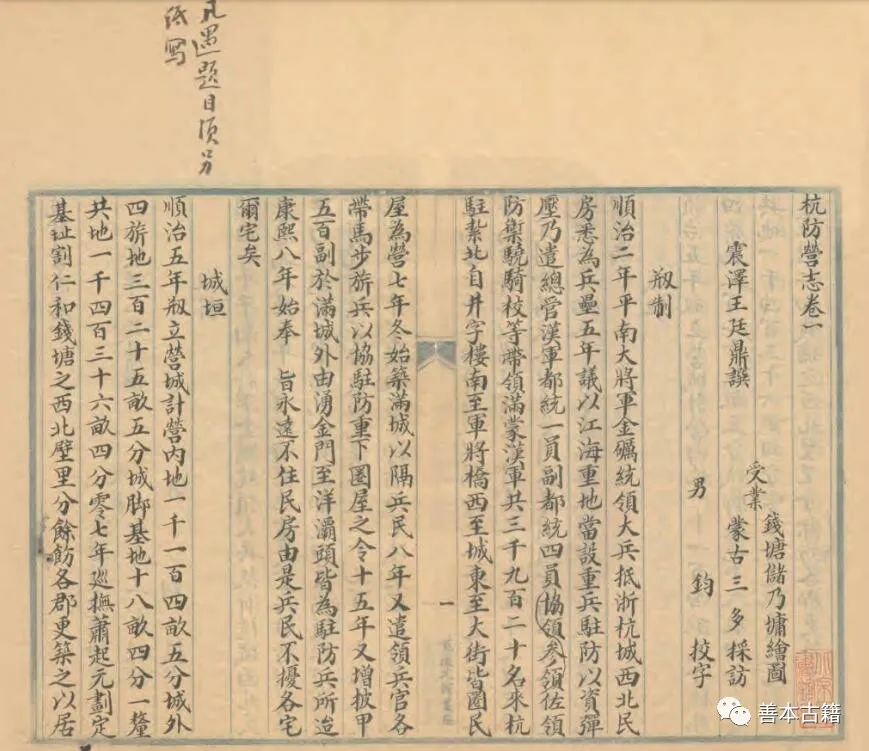 凡遇題目須另
低寫
杭防營志卷一
震澤王廷鼎譔
受業
錢塘儲乃墉繪圖
蒙古三多採訪
男鈞挍字
剏制
順治二年平南大將軍金礪統領大兵抵浙杭城西北民
房悉為兵壘五年議以江海重地當設重兵駐防以資彈
壓乃遣總管漢軍都統一員副都統四員協領參領佐領
防禦驍騎校等帶領滿蒙漢軍共三千九百二十名來杭
駐紮北自井字樓南至軍將橋西至城東至大街皆圈民
一
屋為營七年冬始築滿城以隔兵民八年又遣領兵官各
帶馬步旂兵以協駐防重下圈屋之令十五年又增披甲
五百副於滿城外由湧金門至洋灞頭皆為駐防兵所造
康熙八年始奉旨永遠不住民房由是兵民不擾各宅
爾宅矣
城垣
順治五年剏立營城計營內地一千一百四畝五分城外
四旂地三百二十五畝五分城脚基地十八畝四分一釐
共地一千四百三十六畝四分零七年巡撫蕭起元劃定
基址割仁和錢塘之西北壁里分餘飭各郡更築之以居
善本古籍